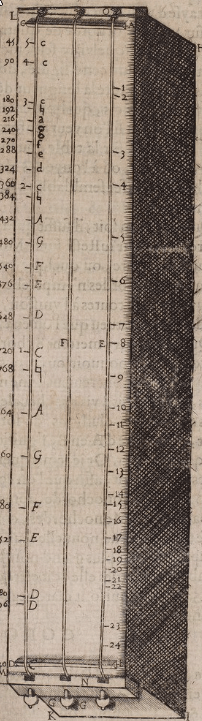 L O
G A H
45 5 c
90 4 c
1
2
180 3 c
192 b
216 a
240 g
270 f
288 e 3
324 d
360 2 c 4
384 b
432 A
480 G 5
540 F
576 E 6
648 D
7
720 C F E 8
768 b
9
10
A
11
G 12
13
14
F 15
16
E 17
18
19
20
21
22
D
D 23
24
D C B
M N
G G
K I